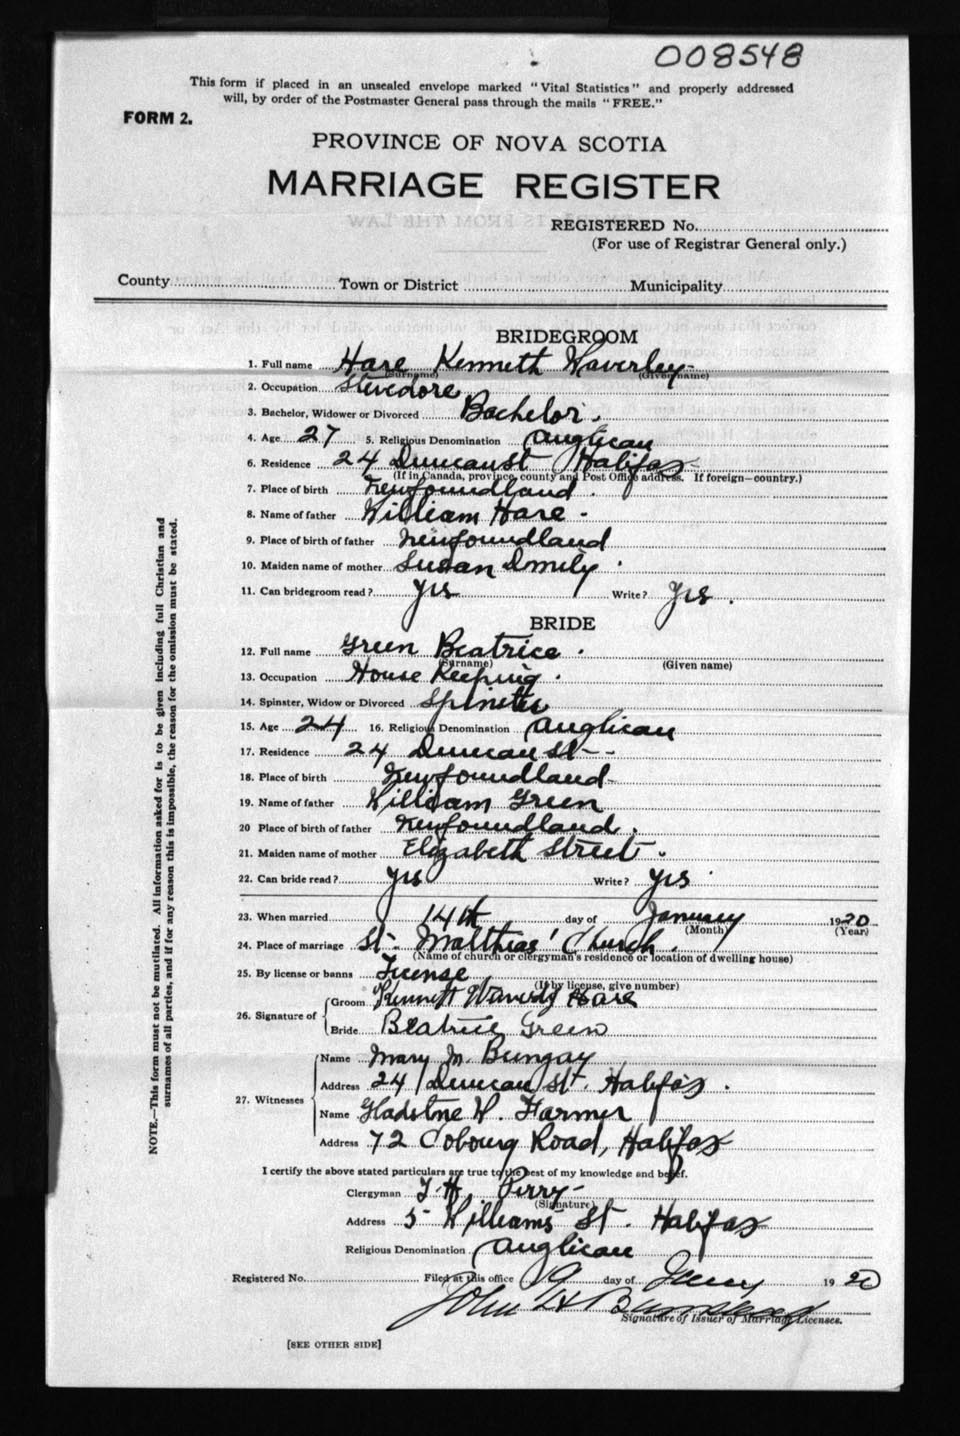 008548
This form if placed in an unsealed envelope marked "Vital Statistics" and properly addressed
will, by order of the Postmaster General pass through the mails "FREE."
FORM 2.
PROVINCE OF NOVA SCOTIA
MARRIAGE REGISTER
REGISTERED No.
(For use of Registrar General only.)
County Town or District Municipality
BRIDEGROOM
1. Full name Hare Kenneth Waverley
(Surname) (Given name)
2. Occupation Stevedore
3. Bachelor, Widower or Divorced Bachelor.
4. Age 27 5. Religious Denomination Anglican
6. Residence 24 Duncan St Halifax
(If in Canada, province, county and Post Office address. If foreign—country.)
7. Place of birth Newfoundland.
8. Name of father William Hare.
9. Place of birth of father Newfoundland
10. Maiden name of mother Susan Emily.
11. Can bridegroom read? Yes Write? Yes.
BRIDE
12. Full name Green Beatrice.
(Surname) (Given name)
13. Occupation House Keeping.
14. Spinster, Widow or Divorced Spinster
15. Age 24 16. Religious Denomination Anglican
17. Residence 24 Duncan St
18. Place of birth Newfoundland
19. Name of father William Green
20 Place of birth of father Newfoundland.
21. Maiden name of mother Elizabeth Street.
22. Can bride read? Yes Write? Yes
23. When married 14th day of January 1920
(Month) (Year)
24. Place of marriage St. Matthias' Church.
(Name of church or clergyman's residence or location of dwelling house)
25. By license or banns License
(If by license, give number)
26. Signature of Groom Kenneth Waverly Hare
Bride Beatrice Green
27. Witnesses Name Mary M. Bungay
Address 24 Duncan St. Halifax.
Name Gladstone W. Farmer
Address 72 Cobourg Road, Halifax
I certify the above stated particulars are true to the best of my knowledge and belief.
Clergyman T. H. Perry
(Signature)
Address 5 Williams St. Halifax
Religious Denomination Anglican
Registered No. Filed at this office 19 day of Jany 1920
John
Signature of Issuer of Marriage Licenses.
[SEE OTHER SIDE]
NOTE.—This form must not be mutilated. All information asked for is to be given including full Christian and
surnames of all parties, and if for any reason this is impossible, the reason for the omission must be stated.